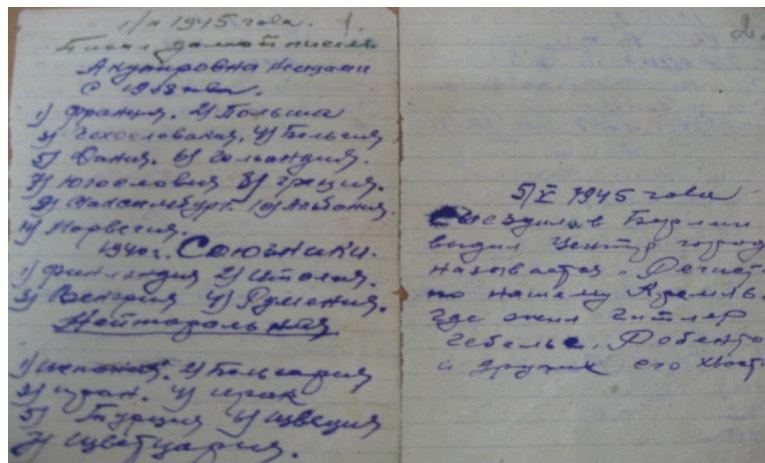 1/II 1945 года. 1.
Писал домой письмо.
Акупировна немцами
с 1938 года.
1) Франция. 2) Польша
3) Чехословакия. 4) Бельгия
5) Дания. 6) Гольандия.
7) Югословия 8) Греция.
9) Люксембург. 10) Албания.
11) Норвегия.
1940 г. Союзники.
1) Финляндия 2) Италия.
3) Венгрия 4) Румения.
Нейтральныя
1) Испания. 2) Болгария
3) Иран. 4) Ирак
5) Турция 6) Швеция
7) Швейцария.
2.
5/V 1945 года
Съездил в Берлин
видил центр город
называется „Рейхст
по нашему Кремль.
где жил Гитлер
Гебельс, Робентро
и других его хвост